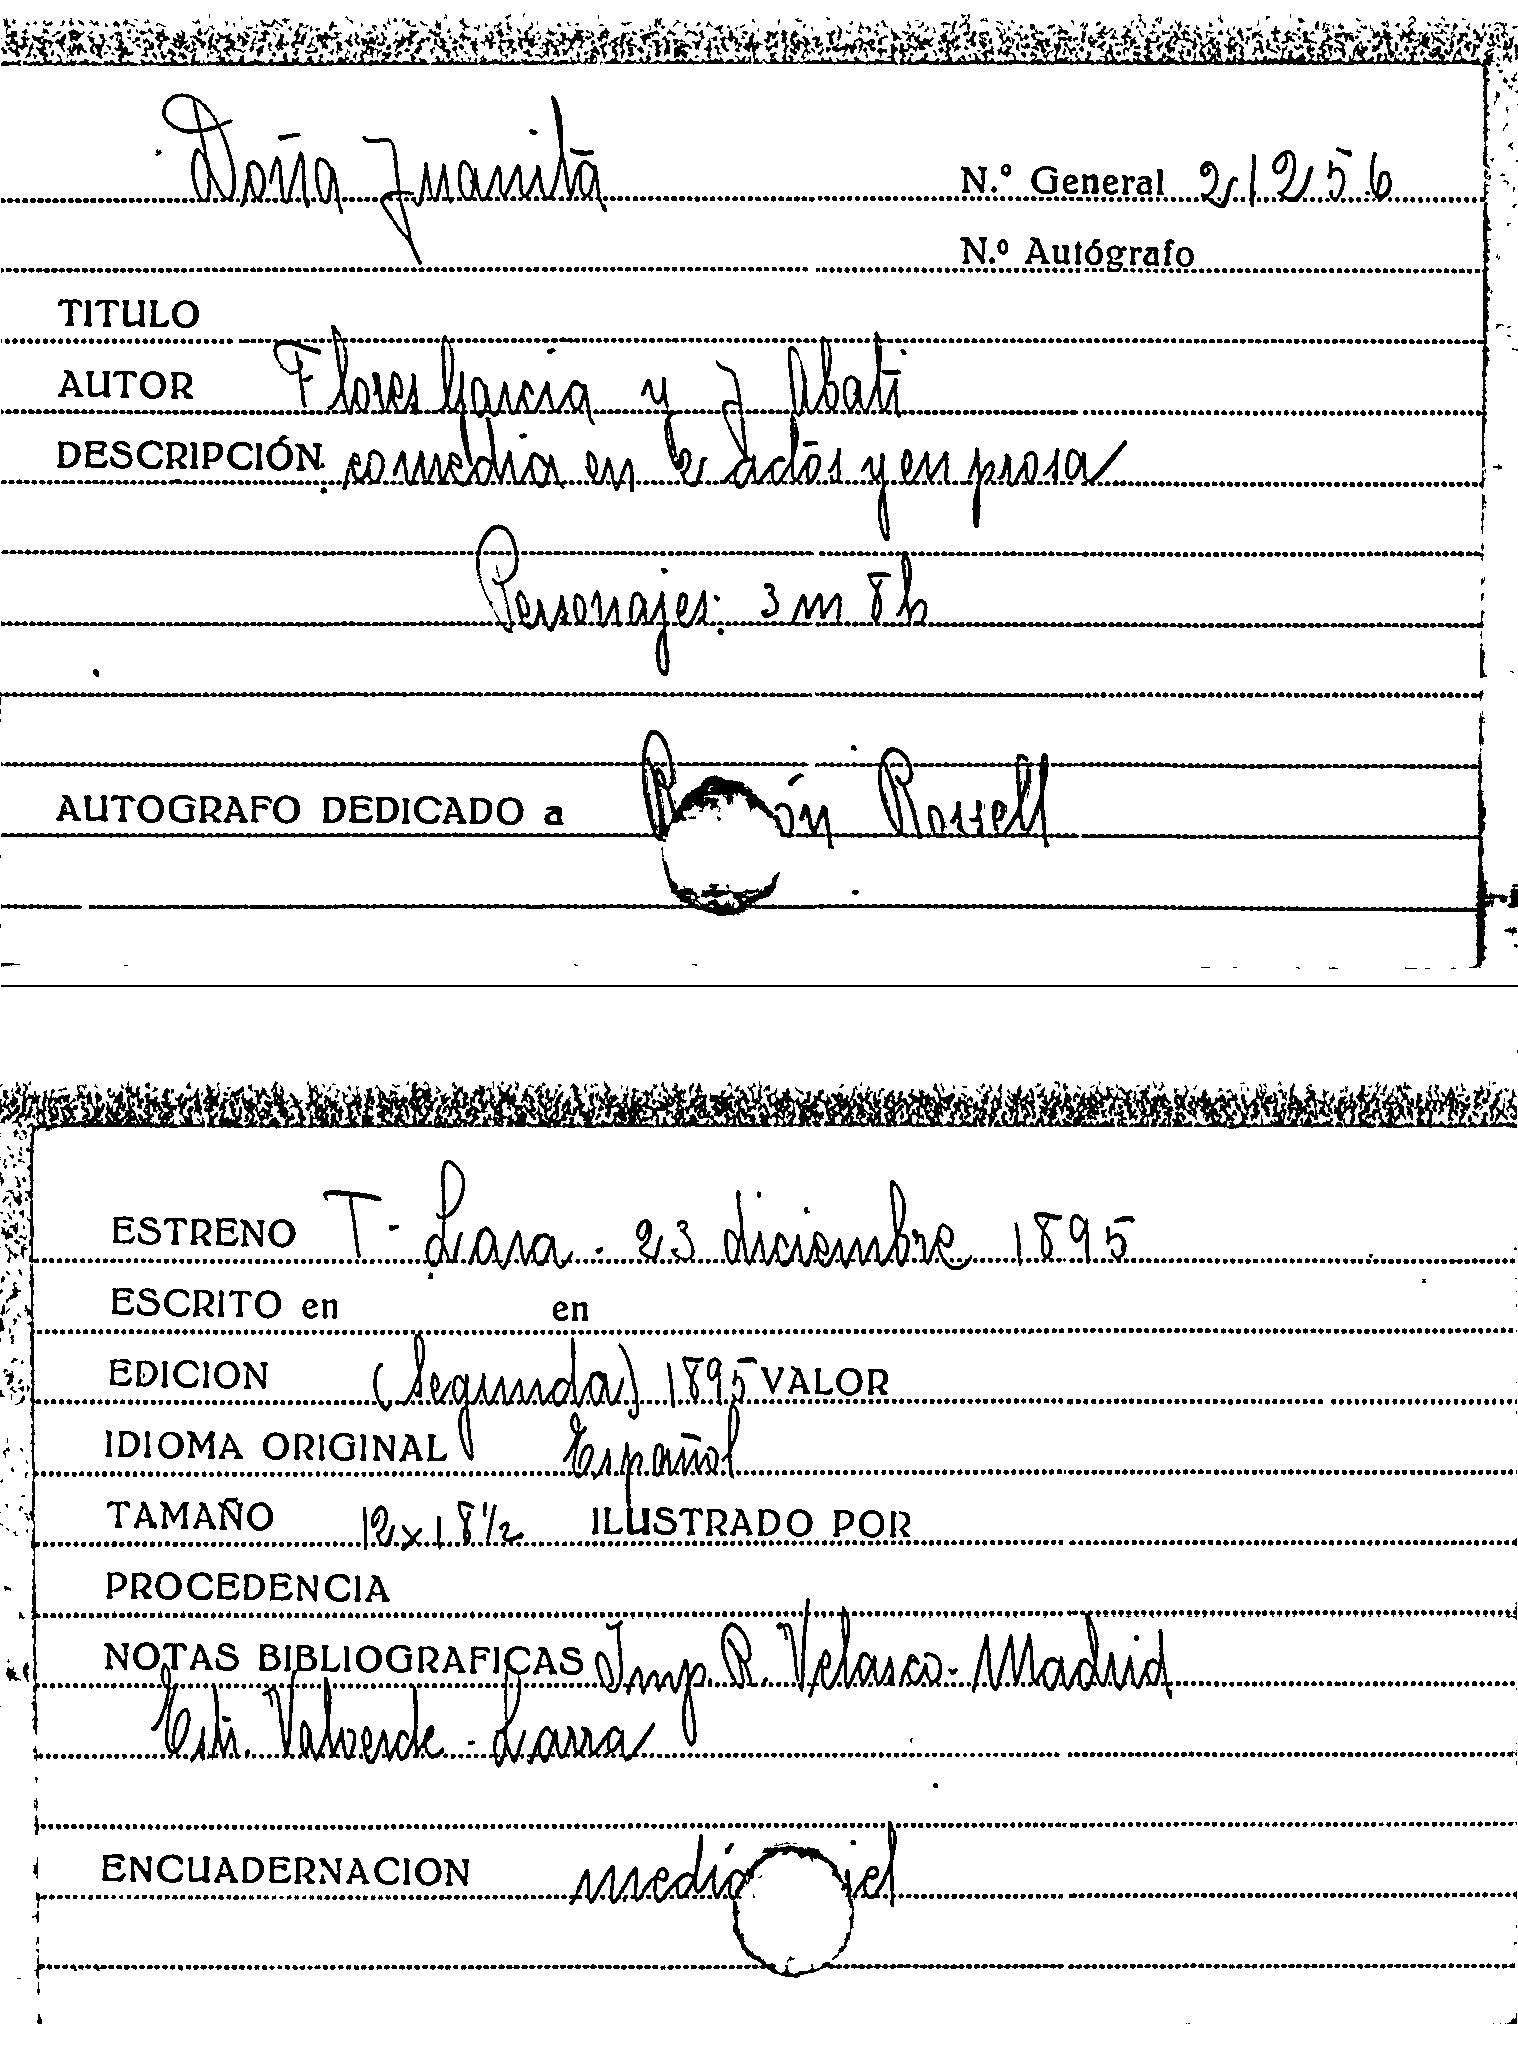 Doña Juanita
N.º General 21256
N.º Autógrafo
TITULO
AUTOR Flores Garcia y J Abati
DESCRIPCIÓN comedia en 2 actos y en prosa
Personajes: 3 m 8 h
AUTOGRAFO DEDICADO a Rossell
ESTRENO T- Lara - 23 diciembre 1895
ESCRITO en en
EDICION (Segunda) 1895 VALOR
IDIOMA ORIGINAL Español
TAMAÑO 12x18 1/2 ILUSTRADO POR
PROCEDENCIA
NOTAS BIBLIOGRAFICAS Imp. R. Velasco - Madrid
Estr. Valverde - Larra
ENCUADERNACION